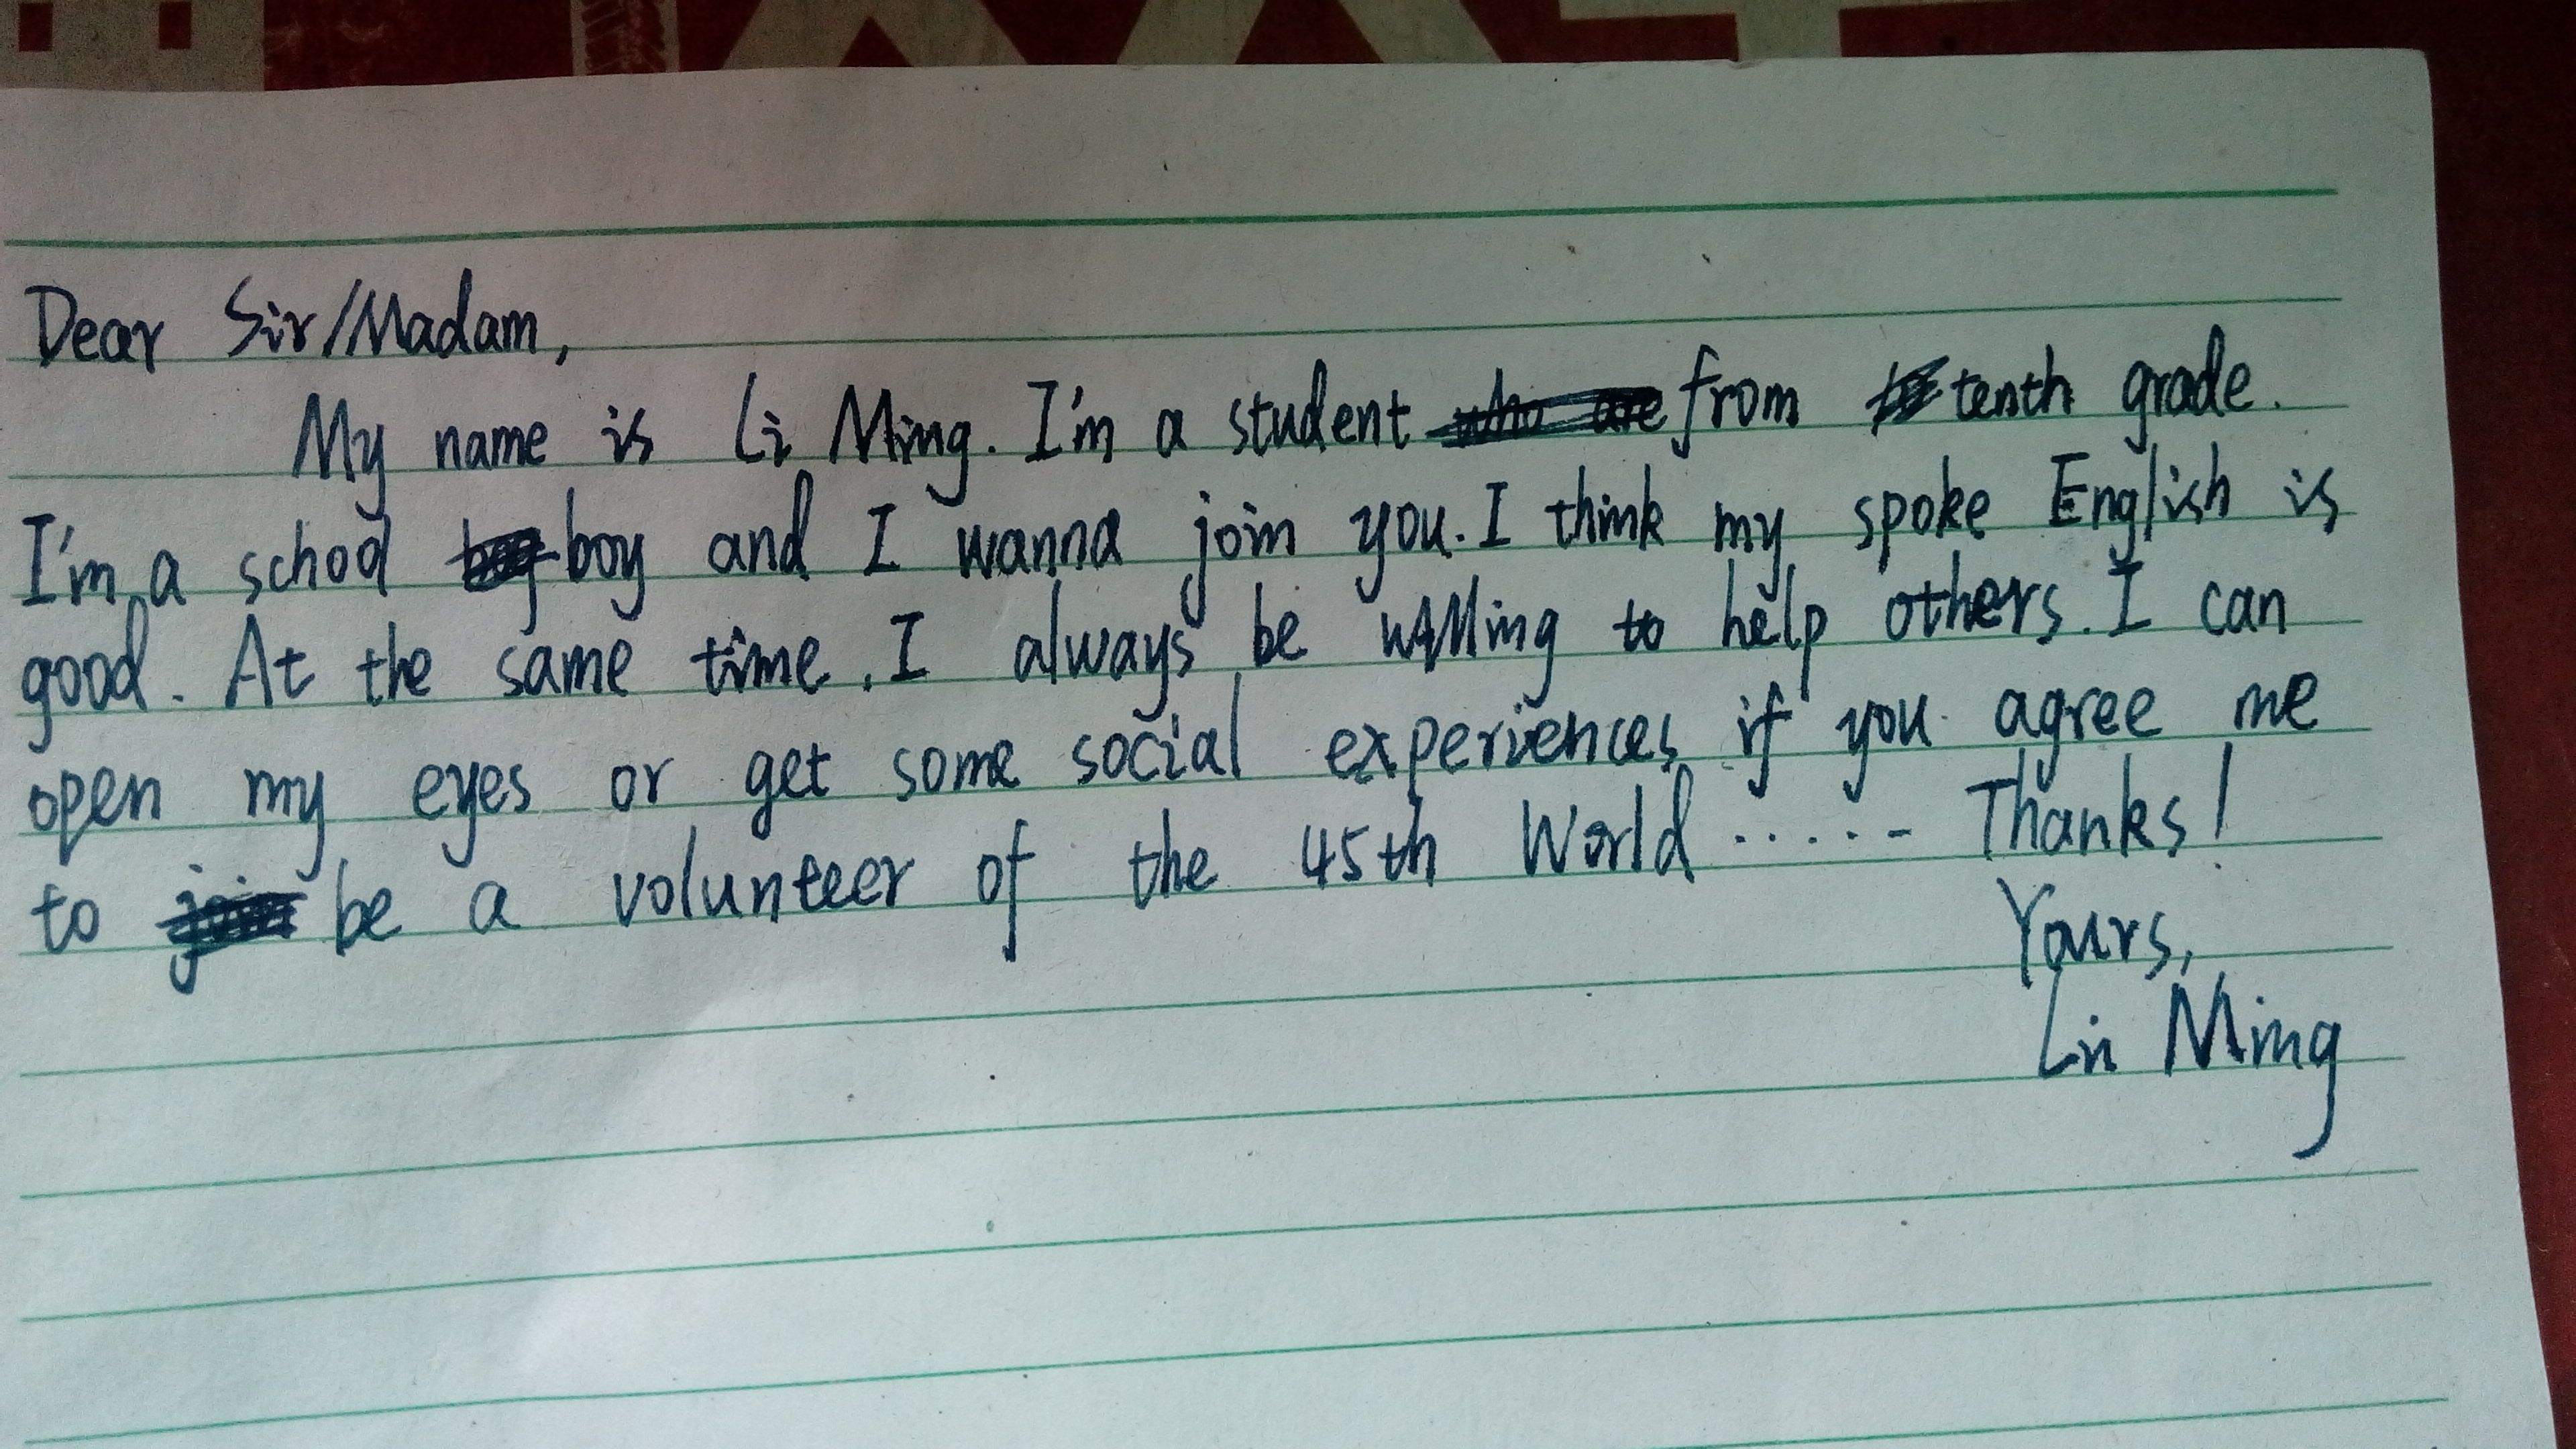 Dear Sir/Madam,
My name is Li Ming. I'm a student from tenth grade.
I'm a school boy and I wanna join you. I think my spoke English is
good. At the same time, I always be willing to help others. I can
open my eyes or get some social experiences if you agree me
to be a volunteer of the 45th World ...... Thanks!
Yours,
Lin Ming